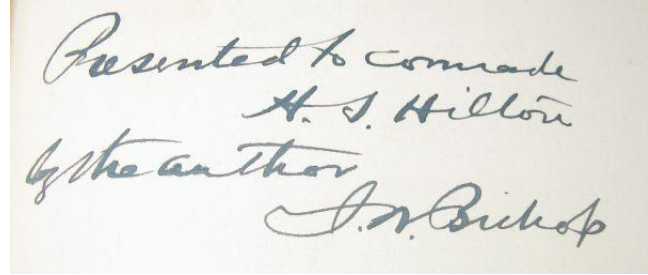 Presented to comrade
H. S. Hilton
by the author
J. W. Bishop